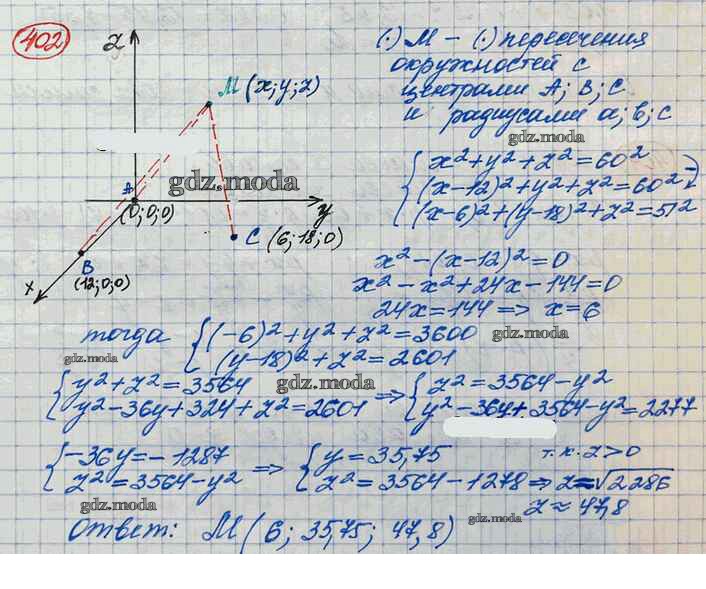 402
z
M (x; y; z)
A
(0; 0; 0)
y
C (6; 18; 0)
B
(12; 0; 0)
x
(·) M – (·) пересечения
окружностей с
центрами A; B; C
и радиусами a; b; c
gdz.moda
x² + y² + z² = 60²
(x-12)² + y² + z² = 60²
(x-6)² + (y-18)² + z² = 51²
gdz.moda
x² - (x-12)² = 0
x² - x² + 24x - 144 = 0
24x = 144 => x = 6
тогда (-6)² + y² + z² = 3600
(y-18)² + z² = 2601
gdz.moda
gdz.moda
y² + z² = 3564
y² - 36y + 324 + z² = 2601
gdz.moda
=> z² = 3564 - y²
y² - 36y + 3564 - y² = 2277
-36y = -1287
z² = 3564 - y²
=> y = 35,75
z² = 3564 - 1278
т.к. z > 0
=> z = √2286
z ≈ 47,8
gdz.moda
gdz.moda
Ответ: M (6; 35,75; 47,8)